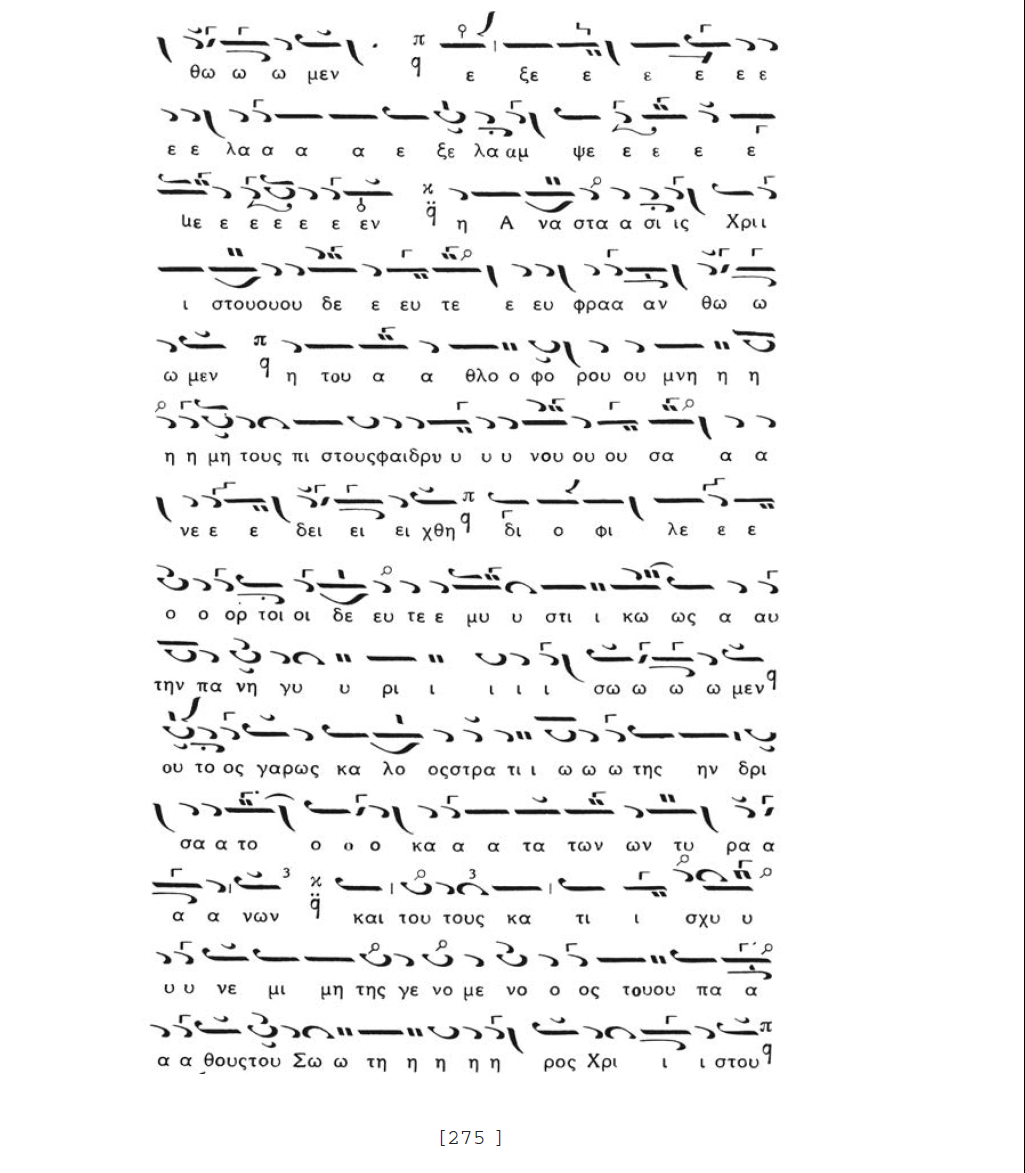 θω ω ω μεν π q ε ξε ε ε ε ε ε
ε ε λα α α α ε ξε λα αμ ψε ε ε ε ε
με ε ε ε ε ε εν ϰ q̈ η Α να στα α σι ις Χρι ι
ι στουουου δε ε ευ τε ε ευ φραα αν θω ω
ω μεν π q η του α α θλο ο φο ρου ου μνη η η
η η μη τους πι στουςφαιδρυ υ υ υ νου ου ου σα α α
νε ε ε δει ει ει χθη π q δι ο φι λε ε ε
ο ο ορ τοι οι δε ευ τε ε μυ υ στι ι κω ως α αυ
την πα νη γυ υ ρι ι ι ι ι σω ω ω ω μεν q
ου το ος γαρως κα λο οςστρα τι ι ω ω ω της ην δρι
σα α το ο ο ο κα α α τα των ων τυ ρα α
α α νων 3 ϰ q̈ και του τους 3 κα τι ι σχυ υ
υ υ νε μι μη της γε νο με νο ο ος τουου πα α
α α θουςτου Σω ω τη η η η η ρος Χρι ι ι στου π q
[275 ]